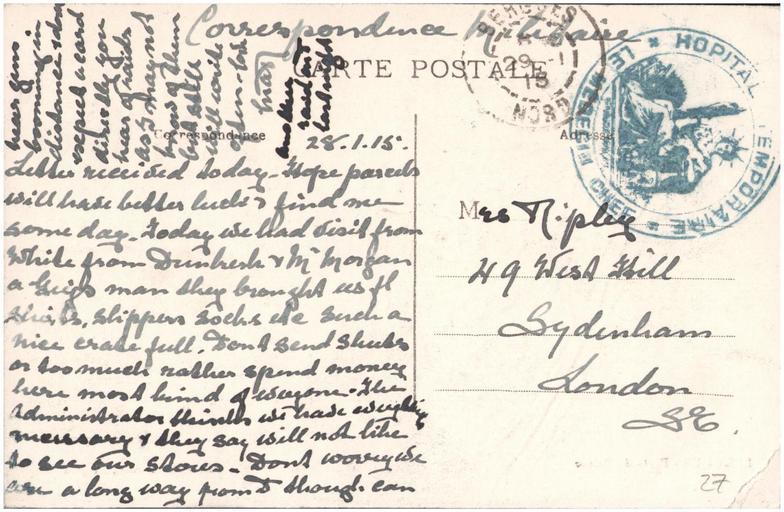 Correspondence Militaire
CARTE POSTALE
Correspondance
Adresse
BERGUES
29 -1
15
NORD
HOPITAL TEMPORAIRE
LE MEDECIN CHEF
28.1.15.
Letter received today - Hope parcels
will have better luck & find me
some day. Today we had visit from
White from Dunkirk & Mr Morgan
a Guy's man they brought us fl
shirts, slippers socks etc such a
nice crate full. Dont send shirts
or too much rather spend money
here most kind of everyone. The
Administrator thinks we have everything
necessary & they say will not like
to see our stores - Dont worry we
are a long way from D though can
hear guns
booming in
distance when
expect a card
directly you
hear of raids
as I may not
know of them
but still
will write
often love
another
raid last
last night
Mrs Ripley
49 West Hill
Sydenham
London
SE.
27